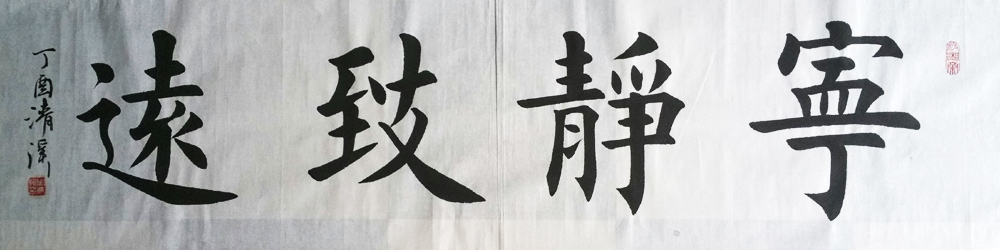 寧靜致遠
丁酉清